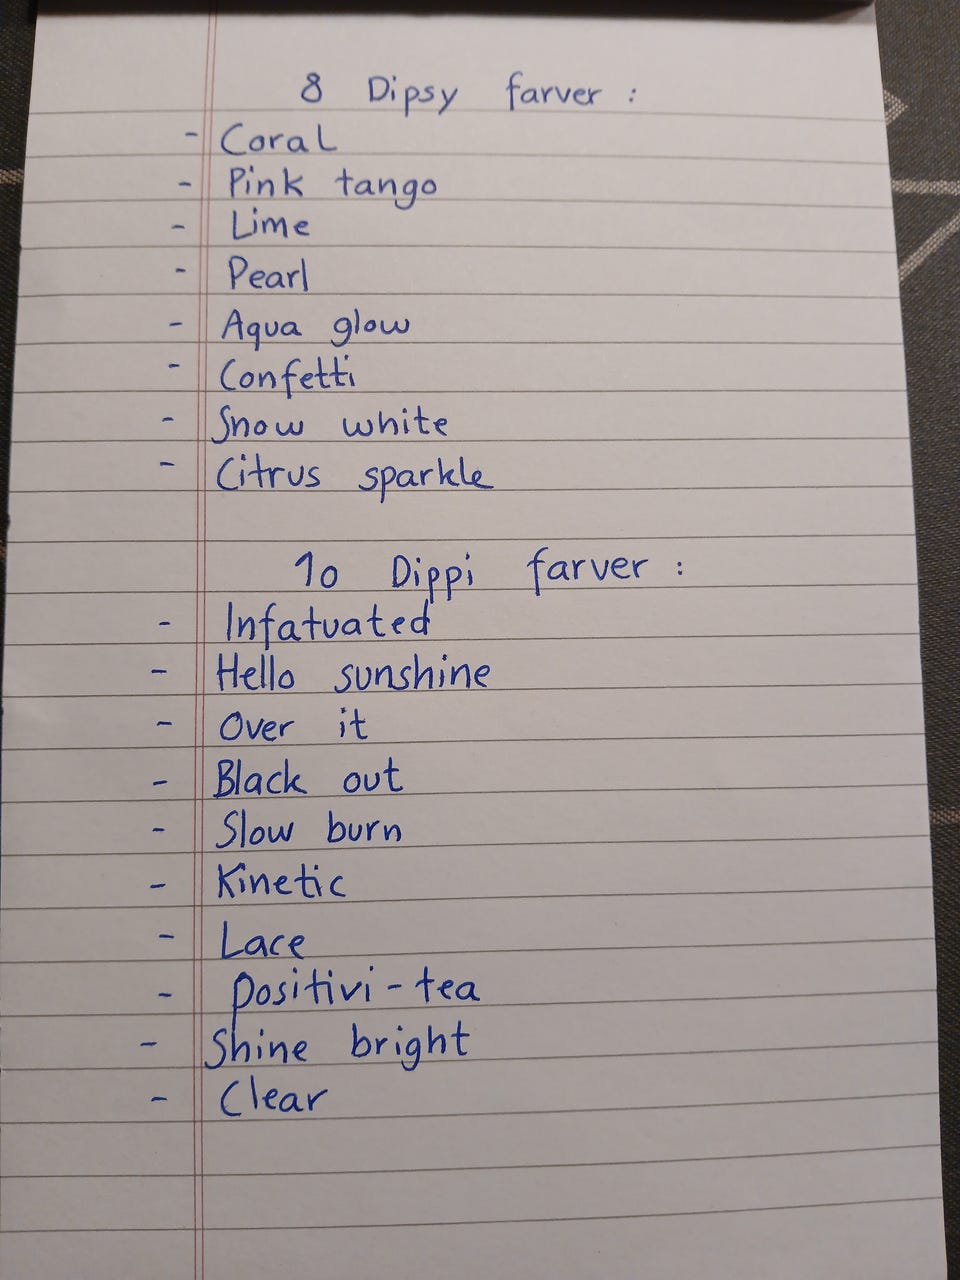 8 Dipsy farver :
- Coral
- Pink tango
- Lime
- Pearl
- Aqua glow
- Confetti
- Snow white
- Citrus sparkle
10 Dippi farver :
- Infatuated
- Hello sunshine
- Over it
- Black out
- Slow burn
- Kinetic
- Lace
- Positivi-tea
- Shine bright
- Clear